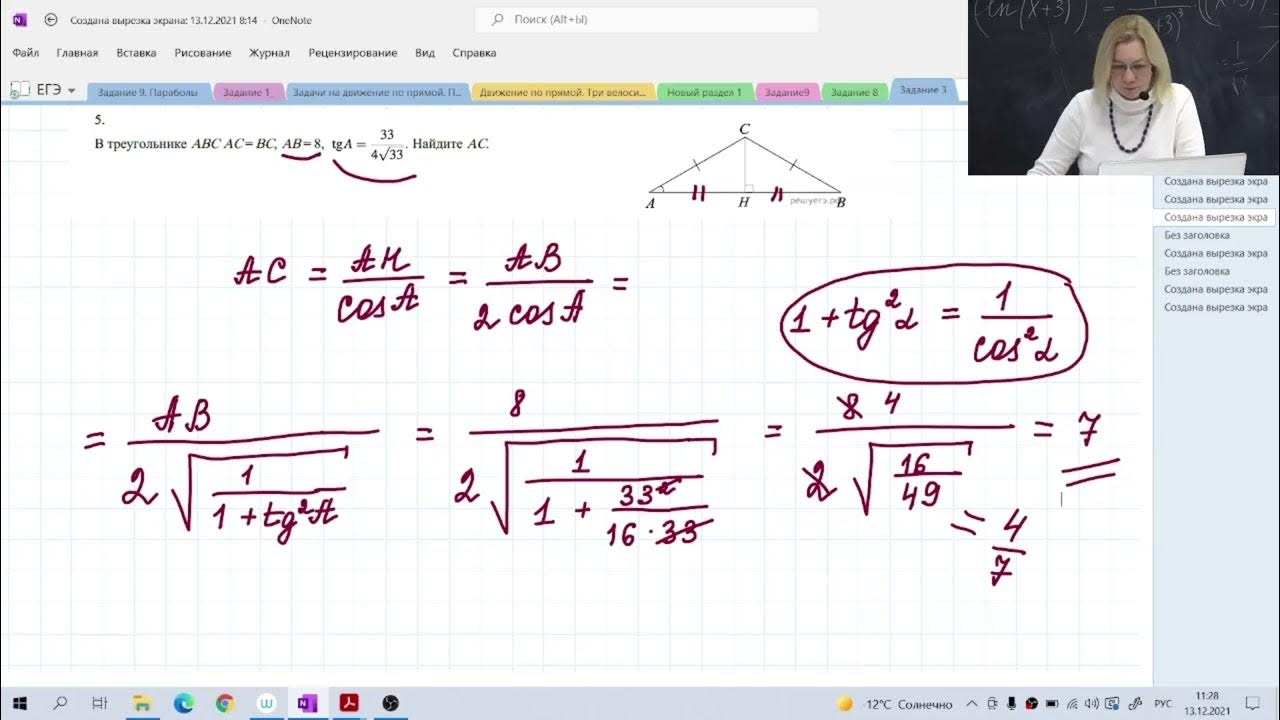 Создана вырезка экрана: 13.12.2021 8:14 - OneNote
Поиск (Alt+Ы)
Файл Главная Вставка Рисование Журнал Рецензирование Вид Справка
ЕГЭ
Задание 9. Параболы Задание 1 Задачи на движение по прямой. П... Движение по прямой. Три велоси... Новый раздел 1 Задание9 Задание 8 Задание 3
5.
В треугольнике ABC AC = BC, AB = 8, tgA = 33/(4√33). Найдите AC.
C
A H B
решуегэ.рф
AC = AH/cosA = AB/(2 cosA) =
1 + tg²α = 1/cos²α
= AB/(2√(1/(1 + tg²A))) = 8/(2√(1/(1 + 33²/(16·33)))) = 8 4/(2√(16/49)) = 7
= 4/7
Создана вырезка экра
Создана вырезка экра
Создана вырезка экра
Без заголовка
Создана вырезка экра
Без заголовка
Создана вырезка экра
Создана вырезка экра
-12°C Солнечно
РУС
11:28
13.12.2021